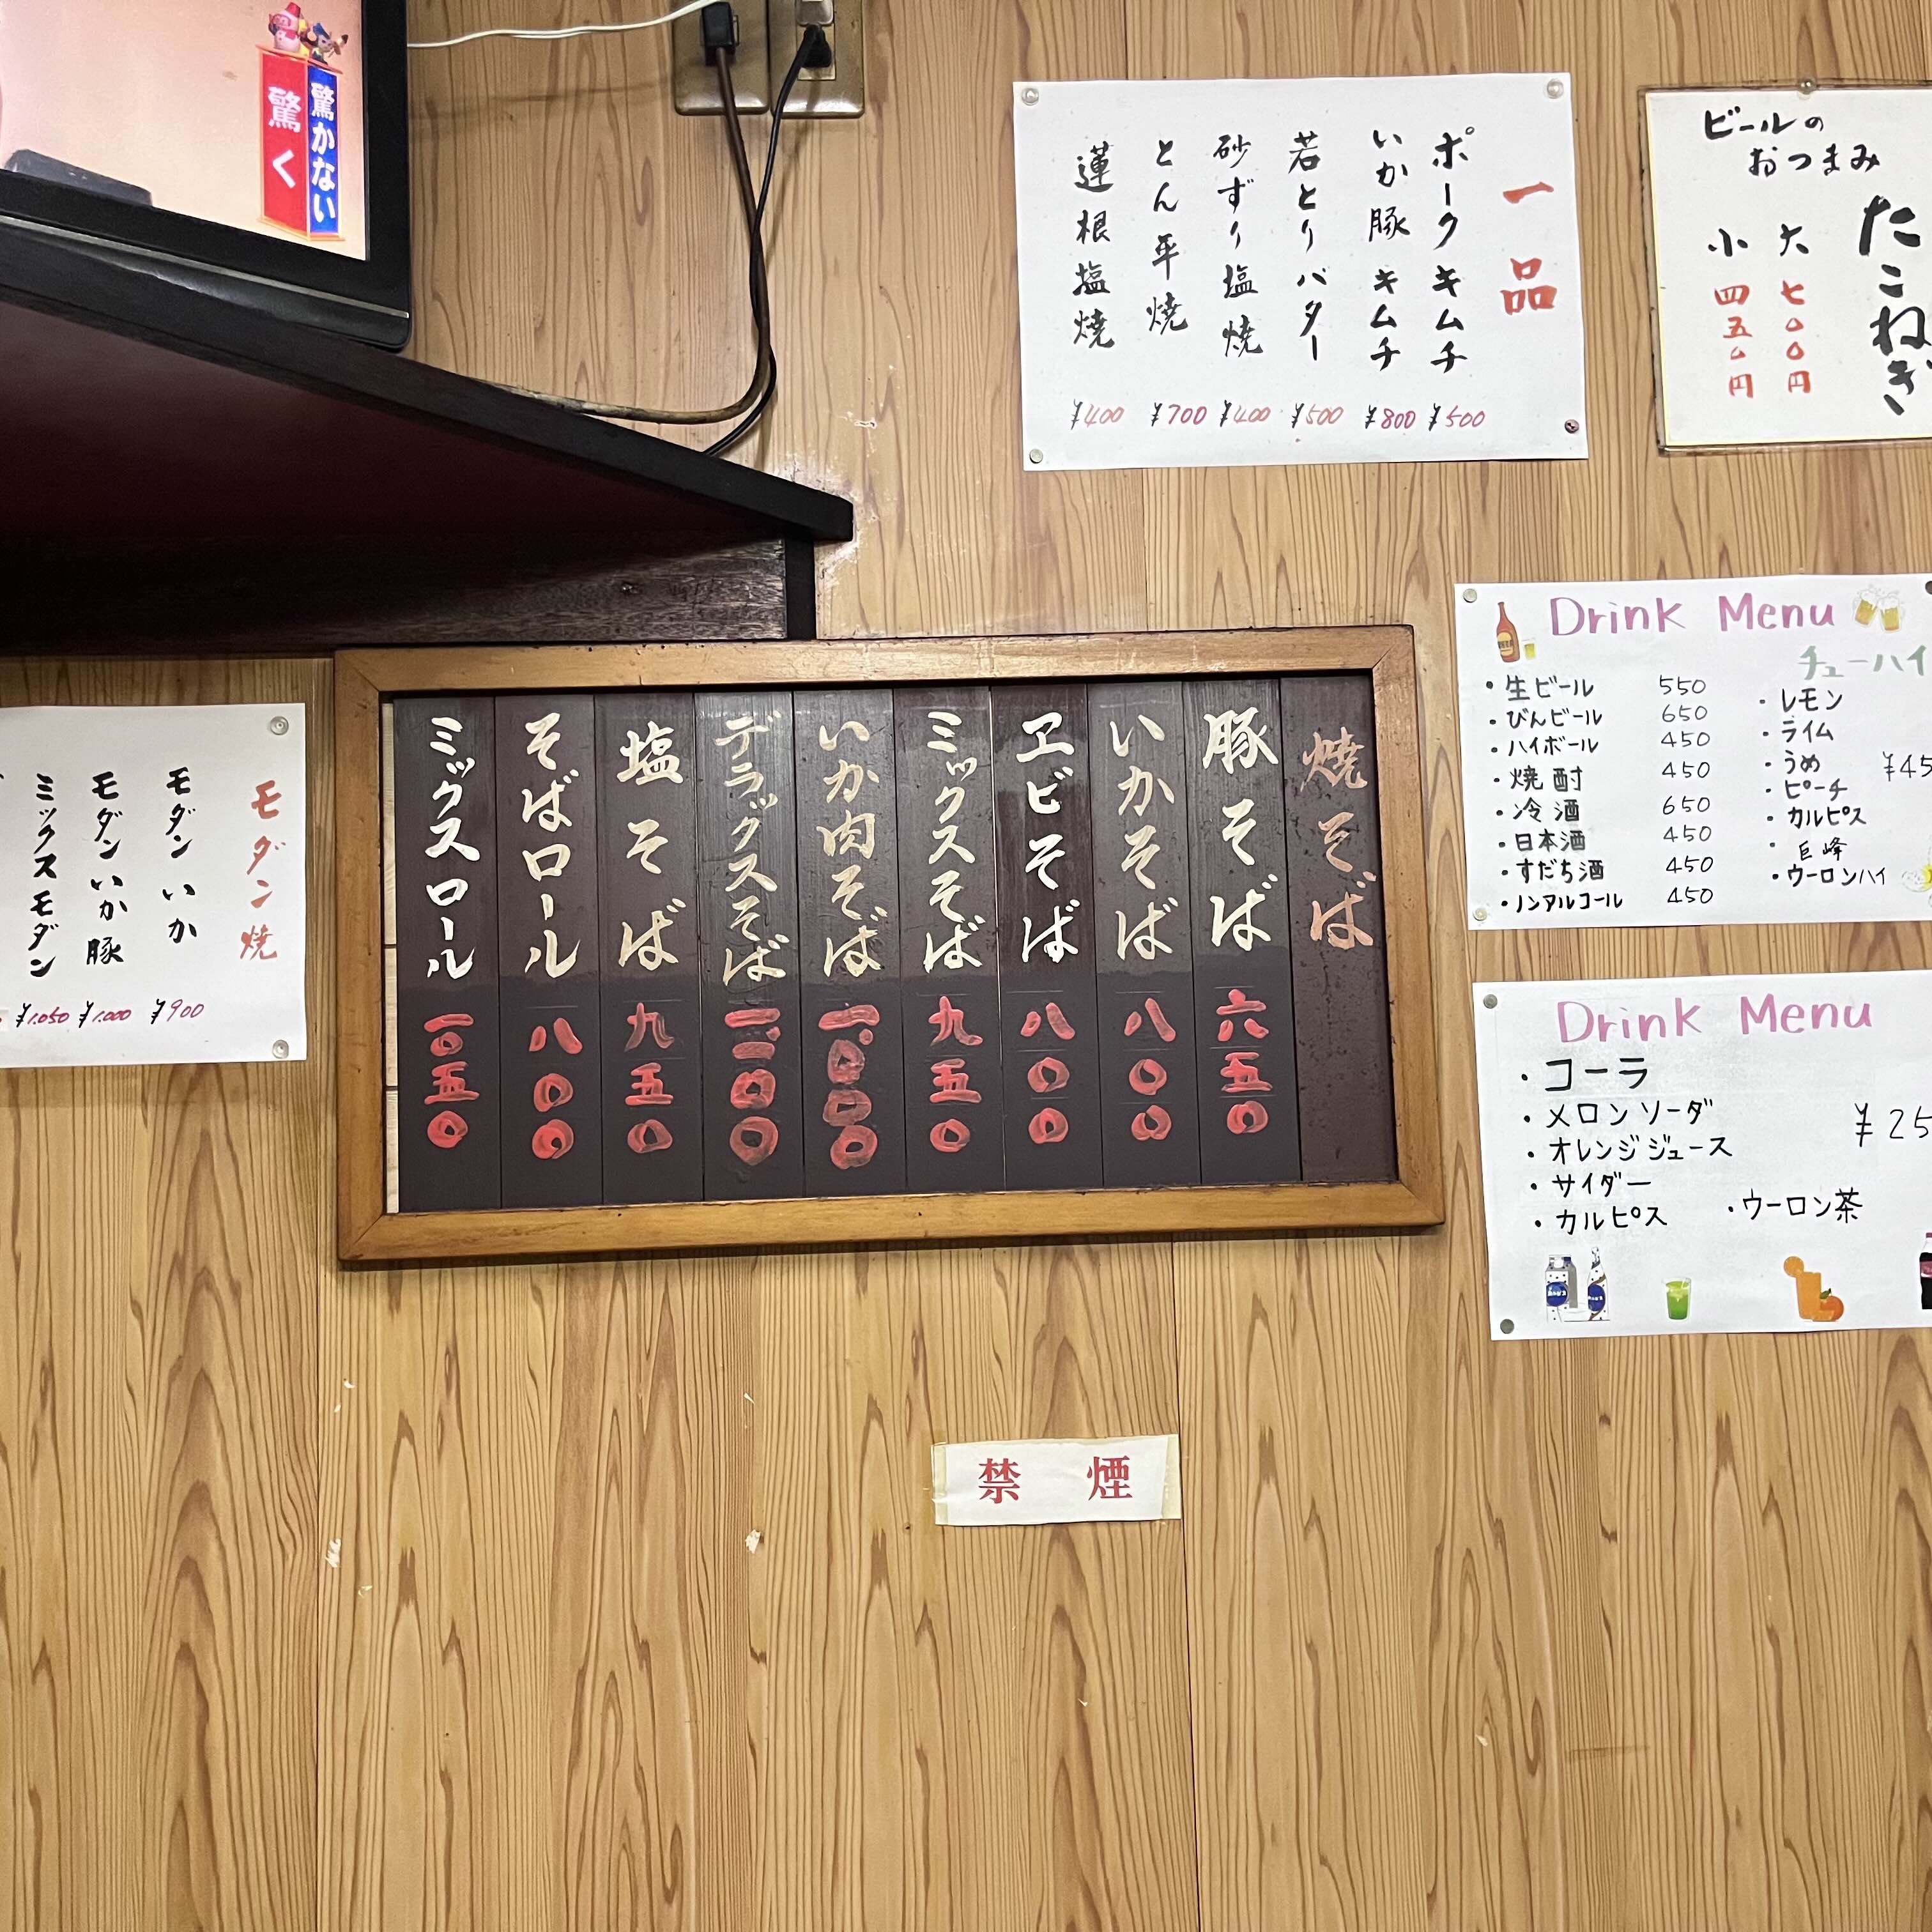 驚かない
驚く
一品
ポークキムチ ¥500
いか豚キムチ ¥800
若とりバター ¥500
砂ずり塩焼 ¥400
とん平焼 ¥700
蓮根塩焼 ¥400
ビールの
おつまみ
たこねぎ
大 七〇〇円
小 四五〇円
Drink Menu
・生ビール 550
・びんビール 650
・ハイボール 450
・焼酎 450
・冷酒 650
・日本酒 450
・すだち酒 450
・ノンアルコール 450
チューハイ
・レモン
・ライム
・うめ
・ピーチ
・カルピス
・巨峰
・ウーロンハイ
Drink Menu
・コーラ
・メロンソーダ
・オレンジジュース
・サイダー
・カルピス
・ウーロン茶
焼そば
豚そば 六五〇
いかそば 八〇〇
ヱビそば 八〇〇
ミックスそば 九五〇
いか肉そば 一、〇〇〇
デラックスそば 一、一〇〇
塩そば 九五〇
そばロール 八〇〇
ミックスロール 一〇五〇
モダン焼
モダンいか ¥900
モダンいか豚 ¥1.000
ミックスモダン ¥1.050
禁煙